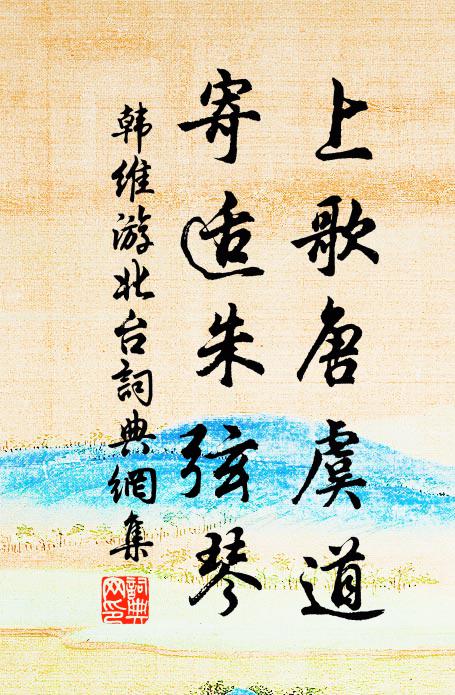 上歌唐虞道
寄适朱弦琴
韩维游北台詞典網集